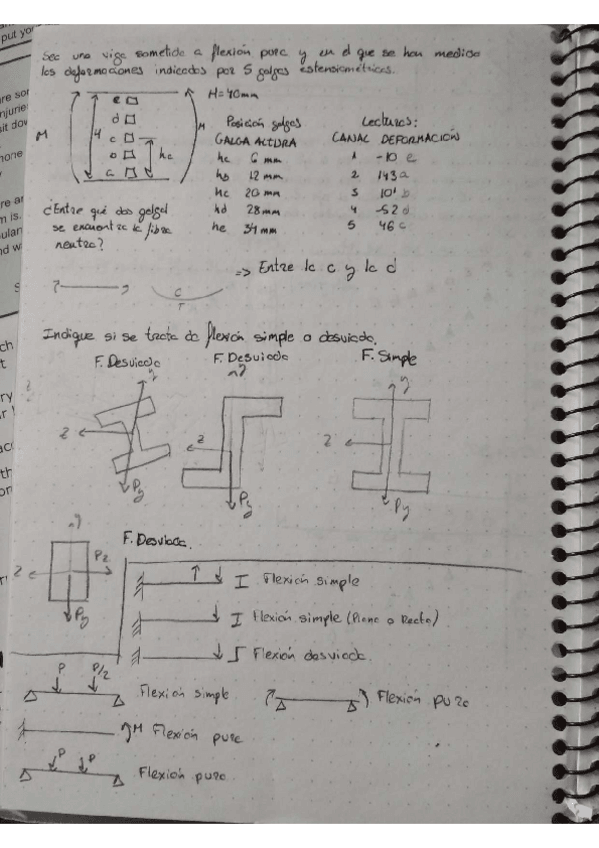 Sea una viga sometida a flexión pura y en el que se han medido
las deformaciones indicadas por 5 galgas extensiométricas.
H=40mm
e
d
c
b
a
H
hc
M
M
Posición galgas
GALGA ALTURA
ha 6 mm
hb 12 mm
hc 20 mm
hd 28 mm
he 34 mm
Lecturas:
CANAL DEFORMACIÓN
1 -10 e
2 143 a
3 101 b
4 -52 d
5 46 c
¿Entre qué dos galgas
se encuentra la fibra
neutra?
=> Entre la c y la d
C
T
Indique si se trata de flexión simple o desviada.
F. Desviada
F. Desviada
F. Simple
y
z
Py
y
z
Py
y
z
Py
y
z
Pz
Py
F. Desviada.
I Flexión simple
I Flexión simple (Plana o Recta)
Flexión desviada.
P P/2
Flexión simple.
Flexión pura
M Flexión pura
P P
Flexión pura.